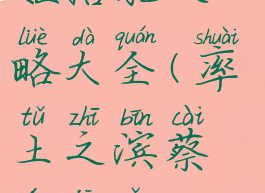 lüè dà quán shuài
略大全(率
tǔ zhī bīn cài
土之滨蔡